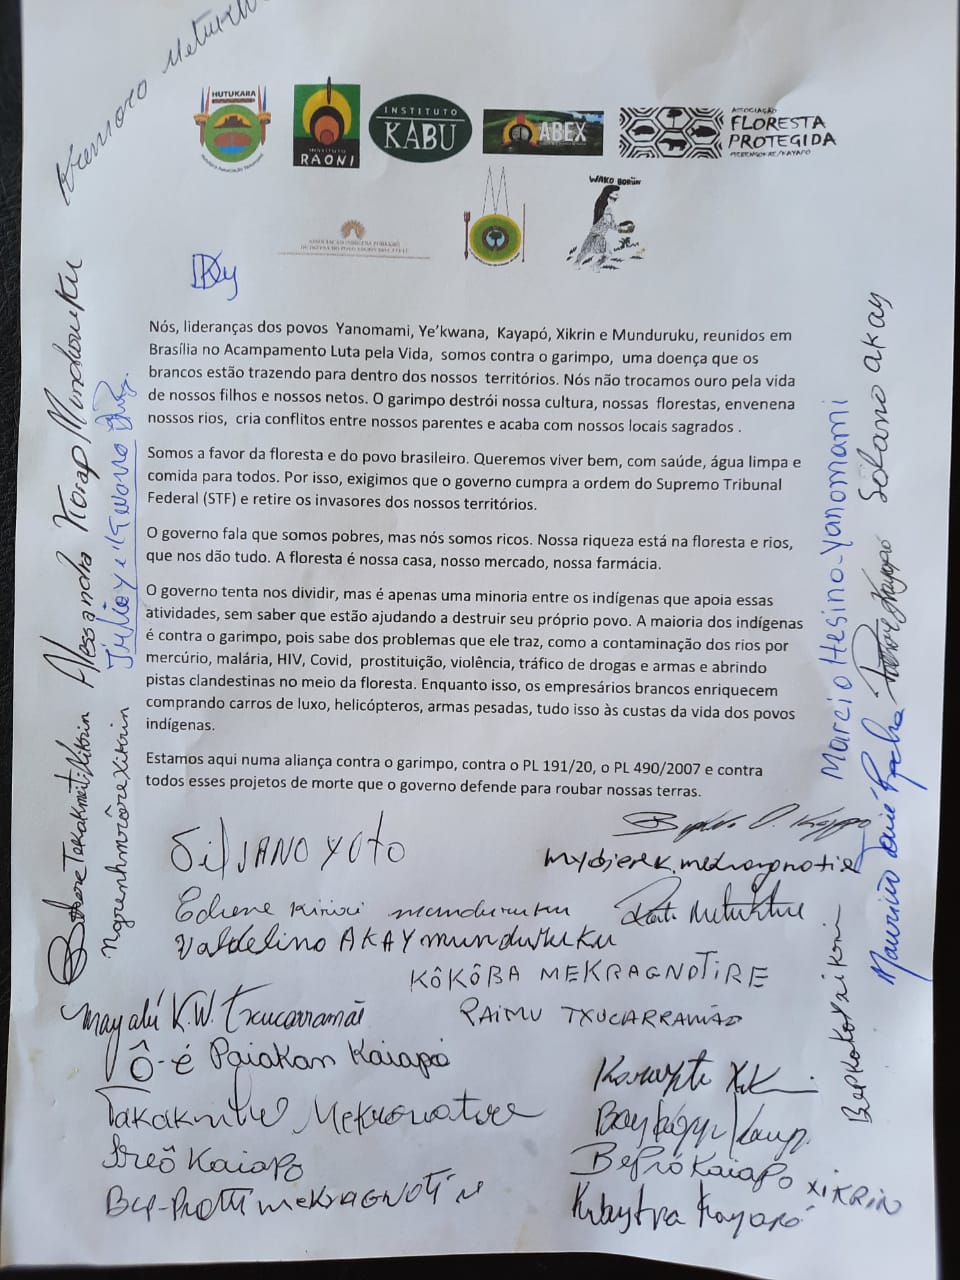 Kamoro Metuktire
HUTUKARA
INSTITUTO
RAONI
INSTITUTO
KABU
ABEX
ASSOCIAÇÃO
FLORESTA
PROTEGIDA
MEBENGOKRE/KAYAPÓ
WAKO BORUN
Nós, lideranças dos povos Yanomami, Ye’kwana, Kayapó, Xikrin e Munduruku, reunidos em
Brasília no Acampamento Luta pela Vida, somos contra o garimpo, uma doença que os
brancos estão trazendo para dentro dos nossos territórios. Nós não trocamos ouro pela vida
de nossos filhos e nossos netos. O garimpo destrói nossa cultura, nossas florestas, envenena
nossos rios, cria conflitos entre nossos parentes e acaba com nossos locais sagrados .
Somos a favor da floresta e do povo brasileiro. Queremos viver bem, com saúde, água limpa e
comida para todos. Por isso, exigimos que o governo cumpra a ordem do Supremo Tribunal
Federal (STF) e retire os invasores dos nossos territórios.
O governo fala que somos pobres, mas nós somos ricos. Nossa riqueza está na floresta e rios,
que nos dão tudo. A floresta é nossa casa, nosso mercado, nossa farmácia.
O governo tenta nos dividir, mas é apenas uma minoria entre os indígenas que apoia essas
atividades, sem saber que estão ajudando a destruir seu próprio povo. A maioria dos indígenas
é contra o garimpo, pois sabe dos problemas que ele traz, como a contaminação dos rios por
mercúrio, malária, HIV, Covid, prostituição, violência, tráfico de drogas e armas e abrindo
pistas clandestinas no meio da floresta. Enquanto isso, os empresários brancos enriquecem
comprando carros de luxo, helicópteros, armas pesadas, tudo isso às custas da vida dos povos
indígenas.
Estamos aqui numa aliança contra o garimpo, contra o PL 191/20, o PL 490/2007 e contra
todos esses projetos de morte que o governo defende para roubar nossas terras.
Alessandra Korap Munduruku
Júlio Ye'Kwana
Ngrenhmrôre Xikrin
Marcio Hesino-Yanomami
Solano akay
Bepkakoti Xikrin
Kayapó
mydjere k. mekragnotire
Ediene Kirixi munduruku
Metuktire
Valdelino AKAY munduruku
KÔKÔBA MEKRAGNOTIRE
Mayalú K.W. Txucarramãe
PAIMU TXUCARRAMÃE
Ô-é Paiakan Kaiapó
Ireô Kaiapo
Bep-Protti mekragnotire
BePró Kaiapo
XIKRIN
Kubytxa Kayapó